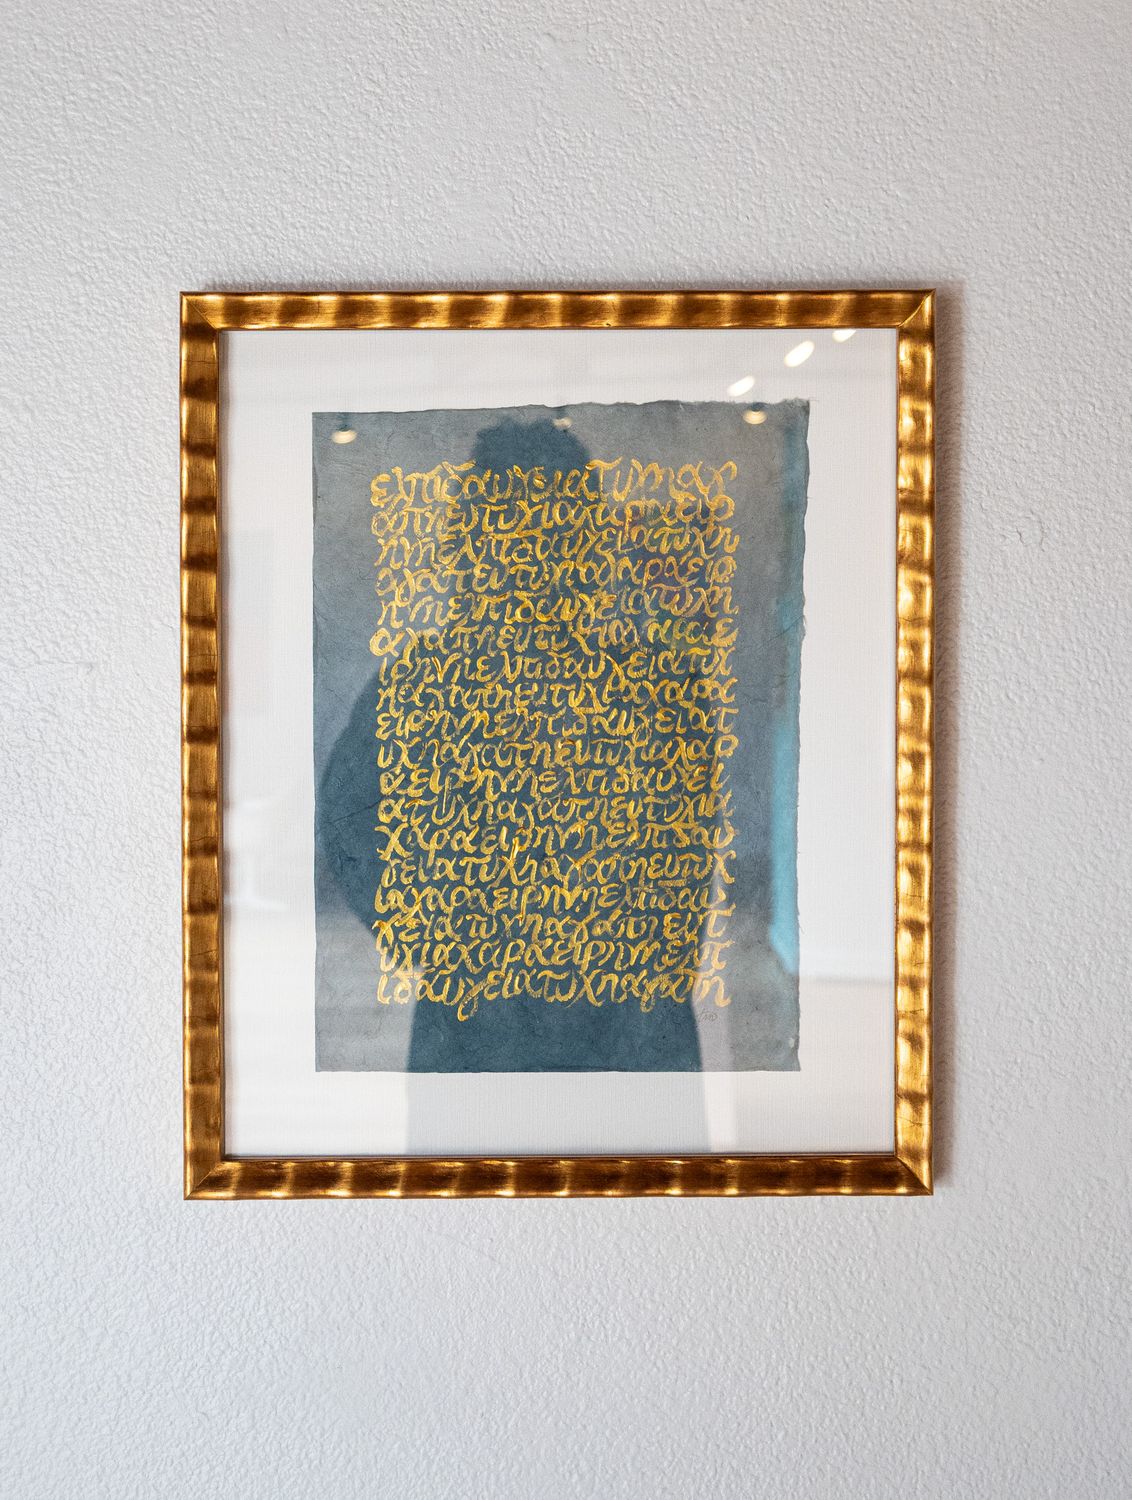 ελπιδαυγειατυχηαγ
απηευτυχιαχαραειρ
ηνηελπιδαυγειατυχη
αγαπηευτυχιαχαραειρ
ηνηελπιδαυγειατυχη
αγαπηευτυχιαχαραε
ιρηνηελπιδαυγειατυχ
ηαγαπηευτυχιαχαρα
ειρηνηελπιδαυγειατ
υχηαγαπηευτυχιαχαρ
αειρηνηελπιδαυγει
ατυχηαγαπηευτυχια
χαραειρηνηελπιδαυ
γειατυχηαγαπηευτυχ
ιαχαραειρηνηελπιδαυ
γειατυχηαγαπηευτ
υχιαχαραειρηνηελπ
ιδαυγειατυχηαγαπη